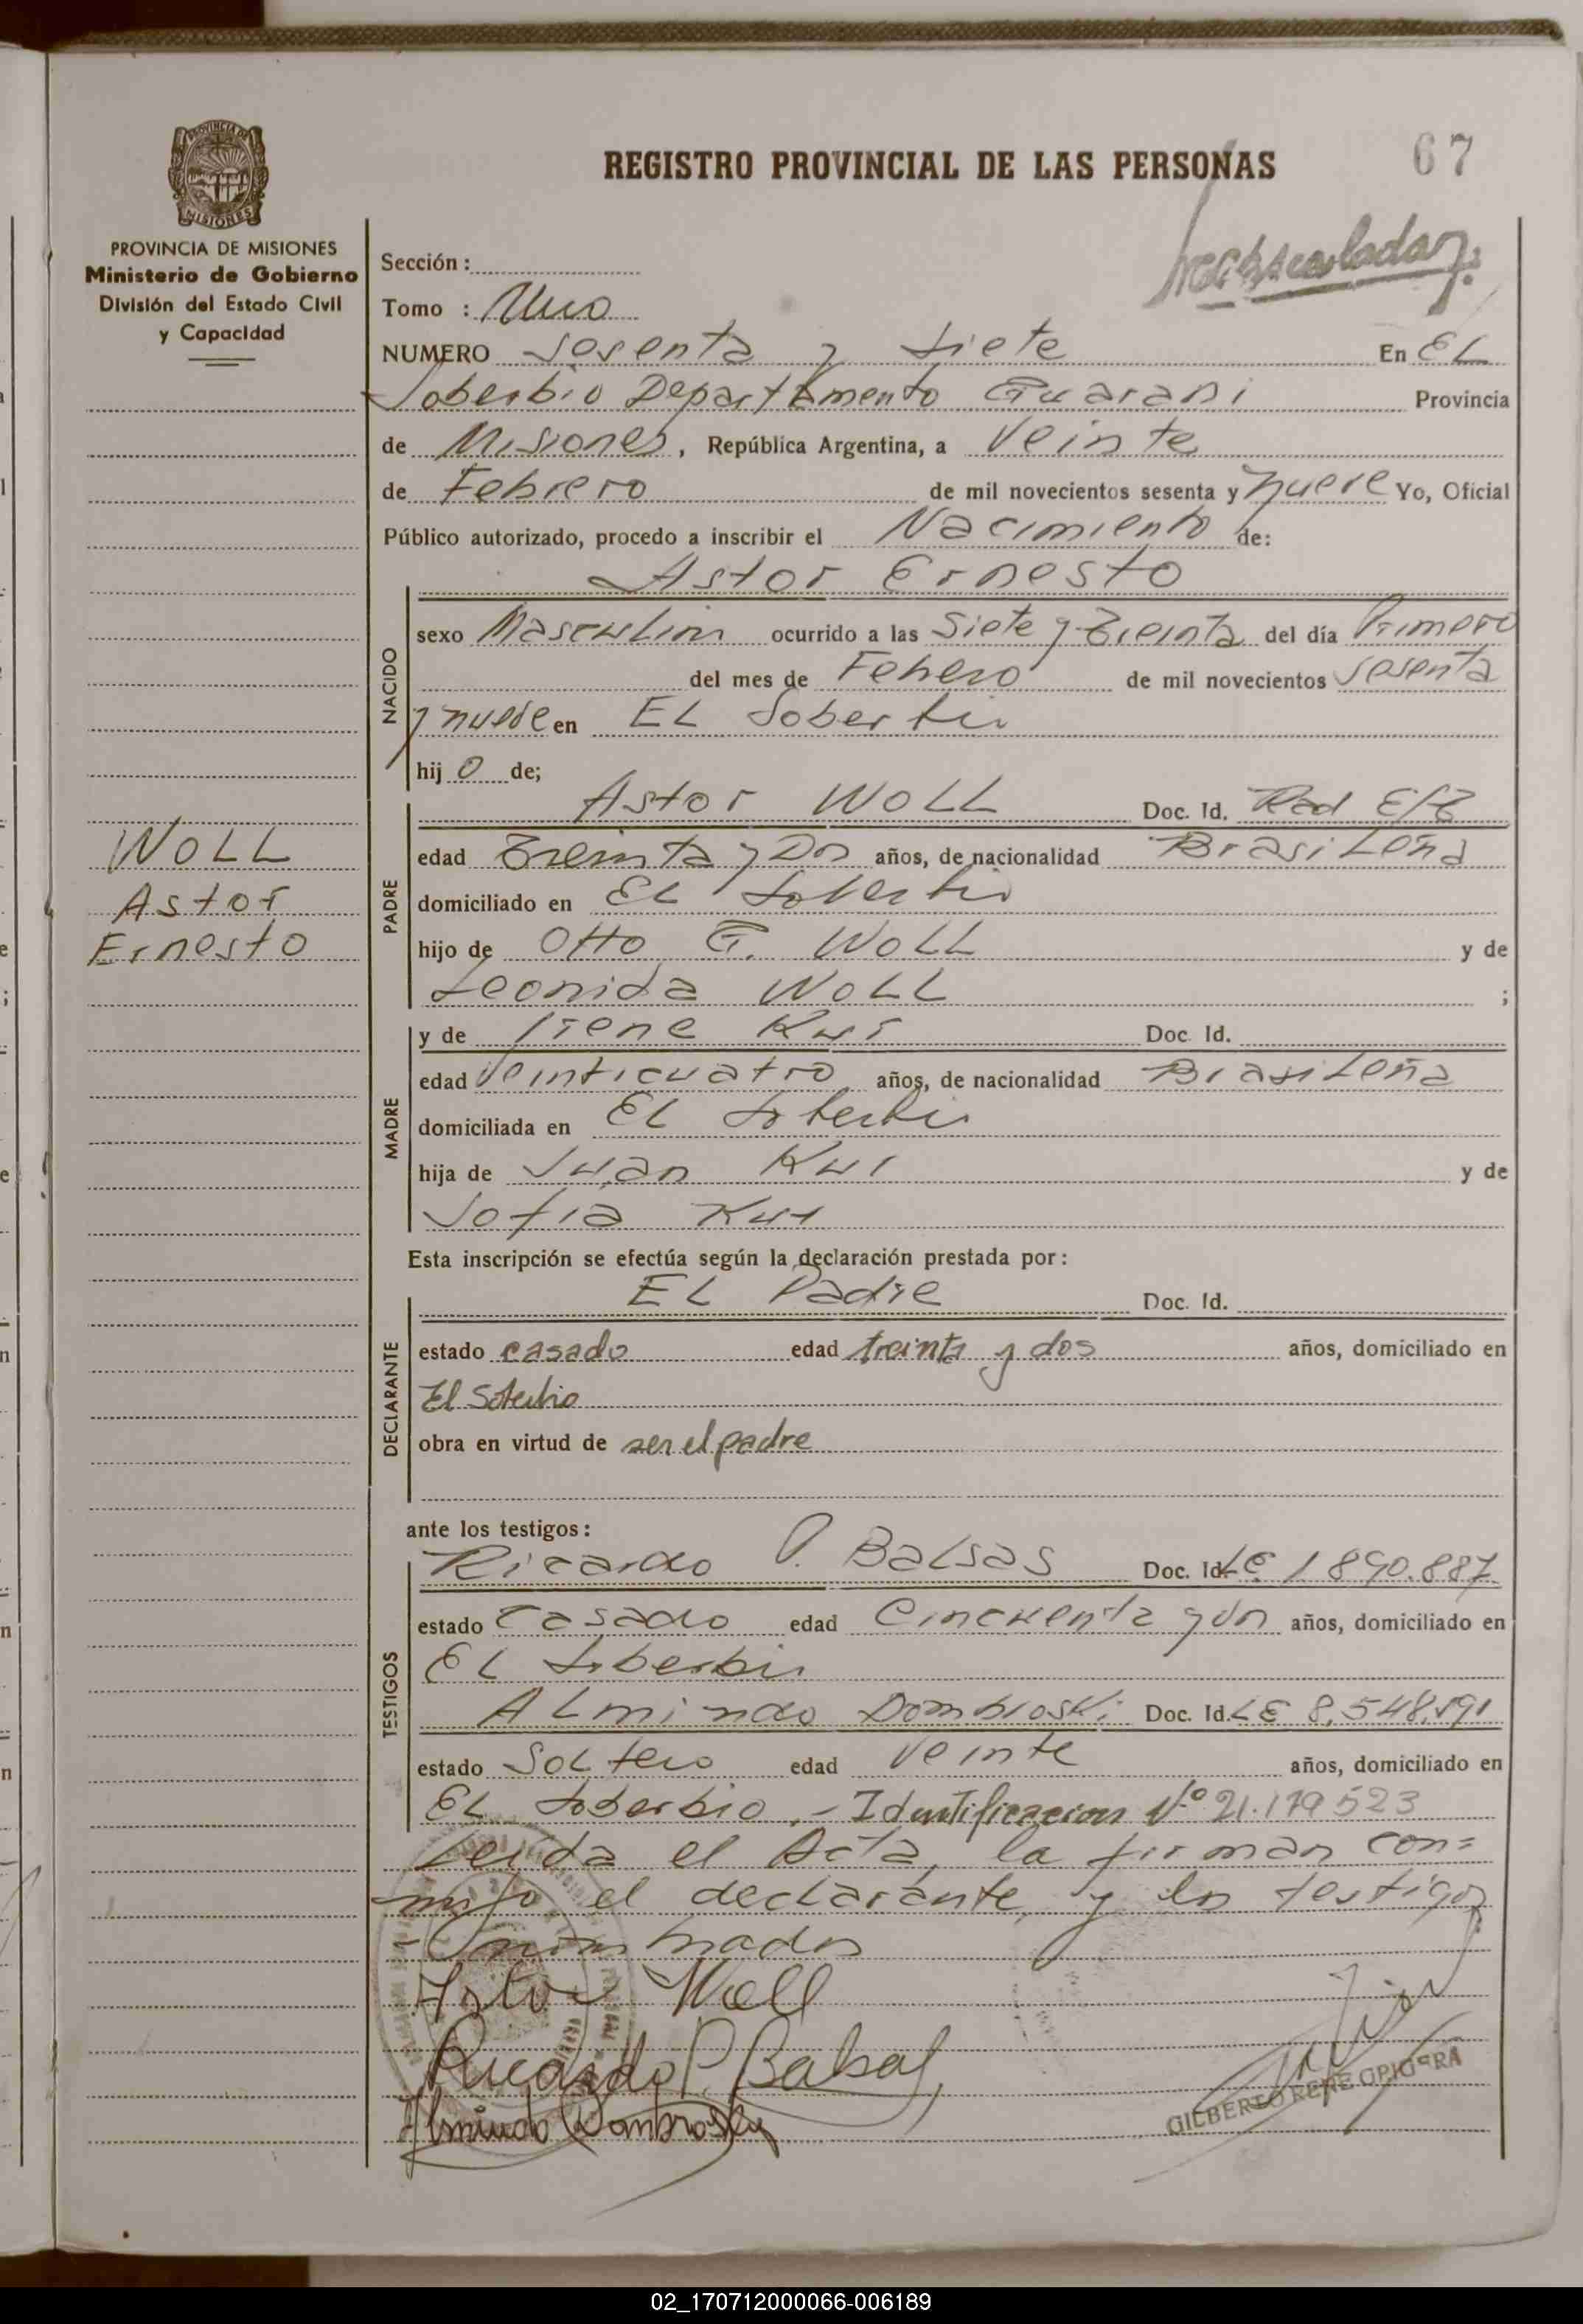 REGISTRO PROVINCIAL DE LAS PERSONAS
67
PROVINCIA DE MISIONES
Ministerio de Gobierno
División del Estado Civil
y Capacidad
Sección :
Tomo : Uno
NUMERO Sesenta y Siete En EL
Soberbio Departamento Guarani Provincia
de Misiones, República Argentina, a Veinte
de Febrero de mil novecientos sesenta y nueve Yo, Oficial
Público autorizado, procedo a inscribir el Nacimiento de:
Astor Ernesto
NACIDO
sexo Masculino ocurrido a las Siete y Treinta del día Primero
del mes de Febrero de mil novecientos Sesenta
y nueve en EL Soberbio
hij o de;
PADRE
Astor WOLL Doc. Id.
edad Treinta y Dos años, de nacionalidad BrasiLeña
domiciliado en EL Soberbio
hijo de Otto G. WOLL y de
Leonida WOLL ;
WOLL
Astor
Ernesto
MADRE
y de Irene Doc. Id.
edad Veinticuatro años, de nacionalidad BrasiLeña
domiciliada en EL Soberbio
hija de Juan y de
Sofia
Esta inscripción se efectúa según la declaración prestada por:
DECLARANTE
EL Padre Doc. Id.
estado casado edad treinta y dos años, domiciliado en
El Soberbio
obra en virtud de ser el padre
ante los testigos:
TESTIGOS
Ricardo P. BaLsas Doc. Id. LE 1890.887
estado Casado edad Cincuenta y un años, domiciliado en
EL Soberbio
ALmindo Dombroski Doc. Id. LE 8.548.191
estado SoLtero edad Veinte años, domiciliado en
EL Soberbio.- Identificacion Nº 21.179523
Leida el Acta, la firman con=
migo el declarante, y los testigos
nombrados
Astor Woll
Ricardo P. Balsas
Almindo Dombrosky
GILBERTO RENE
02_170712000066-006189